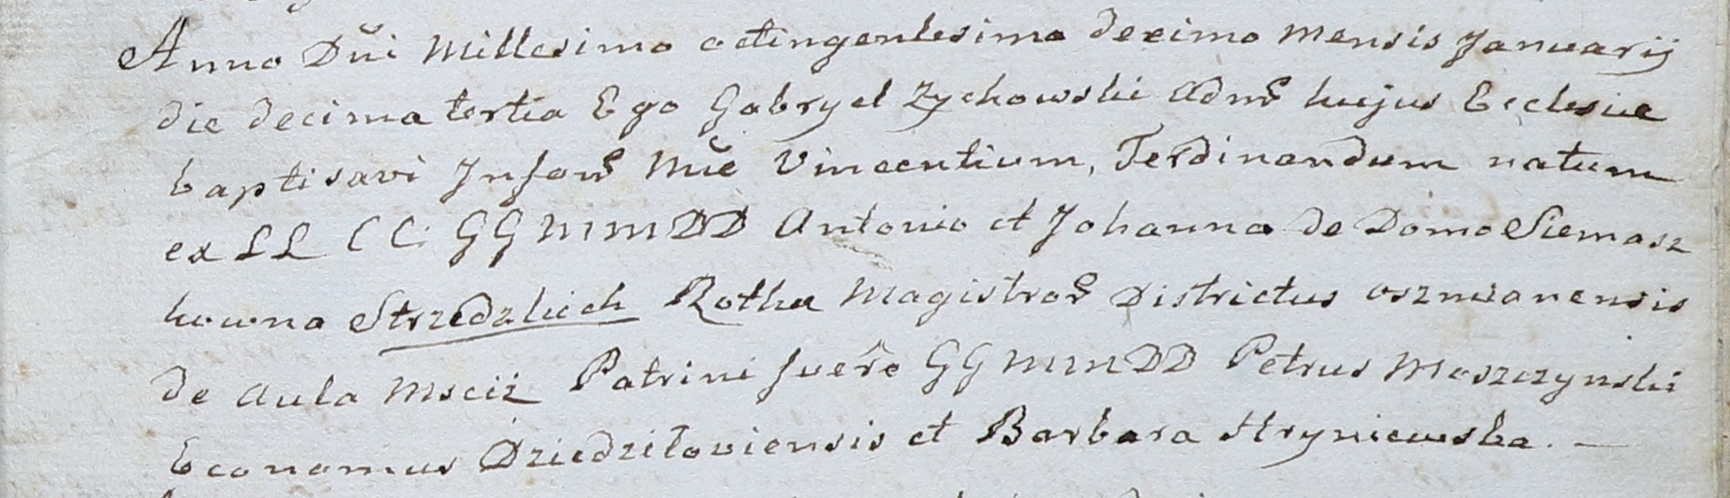 Anno Dñi Millesimo octingentesimo decimo mensis Januarij
die decima tertia Ego Gabryel Zychowski Adms hujus Ecclesiae
baptisavi Infans Nñe Vincentium, Ferdinandum natum
ex LL CC. GG MM DD Antonio et Johanna de Domo Siemasz
kowna Strzedzkich Rotha Magistros Districtus oszmianensis
de Aula Patrini fuere GG MM DD Petrus Moszczynski
Economus Dziedziłoviensis et Barbara Hryniewska. —